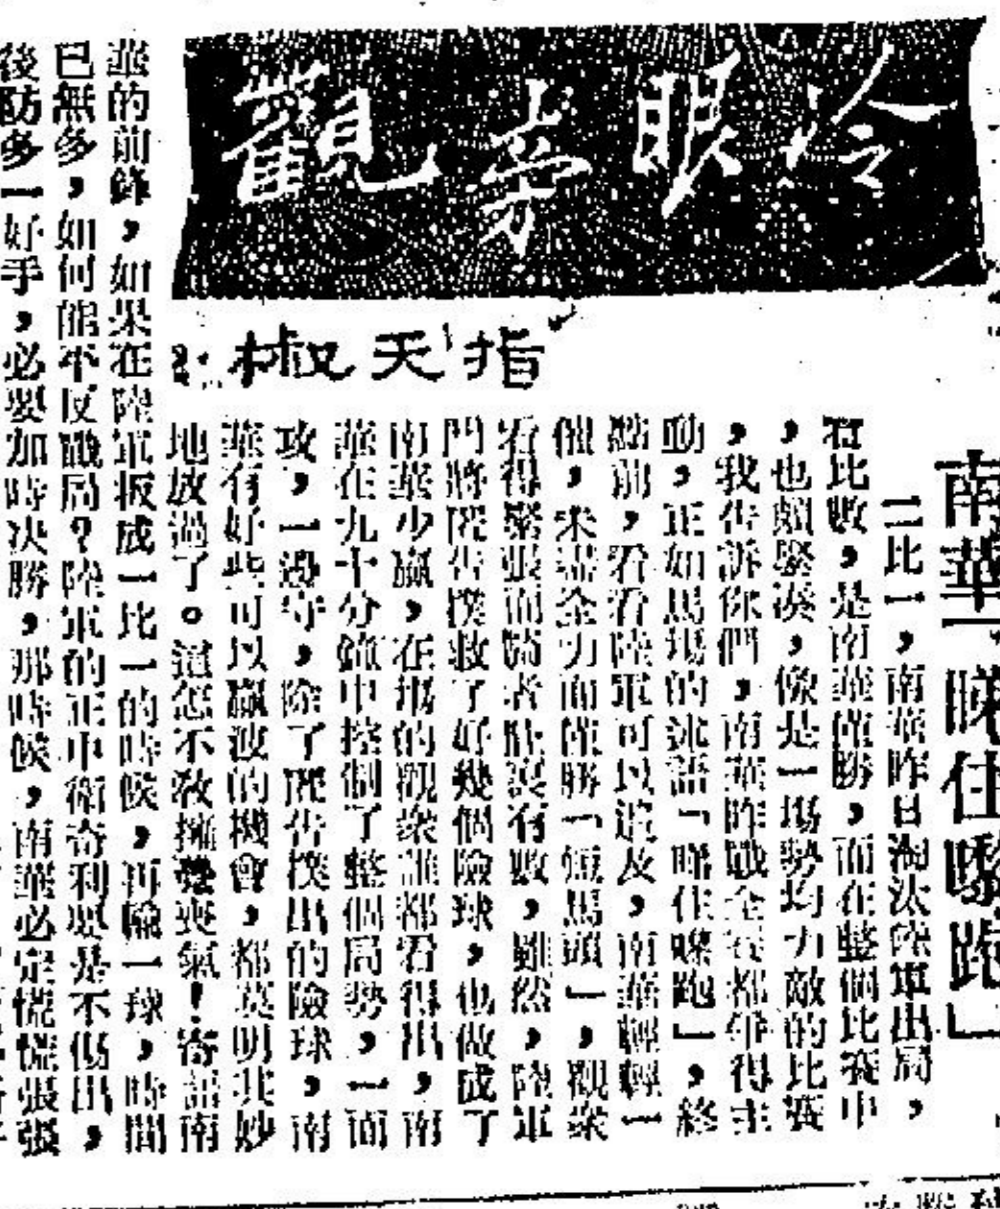 冷眼旁觀
指天椒
南華「睇住嚟跑」
二比一,南華昨日淘汰陸軍出局,
看比數,是南華僅勝,而在整個比賽中
,也頗緊湊,像是一場勢均力敵的比賽
,我告訴你們,南華昨戰全喺都爭得主
動,正如馬場的述語「睇住嚟跑」,終
點前,看看陸軍可以追及,南華輕輕一
催,未盡全力而僅勝「短馬頭」,觀衆
看得緊張而騎者胜裏有數,雖然,陸軍
門將㑆告撲救了好幾個險球,也做成了
南華少贏,在場的觀衆誰都看得出,南
華在九十分鐘中控制了整個局勢,一面
攻,一邊守,除了㑆告撲出的險球,南
華有好些可以贏波的機會,都莫明其妙
地放過了。這怎不敎擁躉喪氣!寄語南
華的前鋒,如果在陸軍扳成一比一的時候,再輸一球,時間
已無多,如何能不反戰局?陸軍的正中衛奇利要是不傷出,
後防多一好手,必要加時决勝,那時候,南華必定慌慌張張